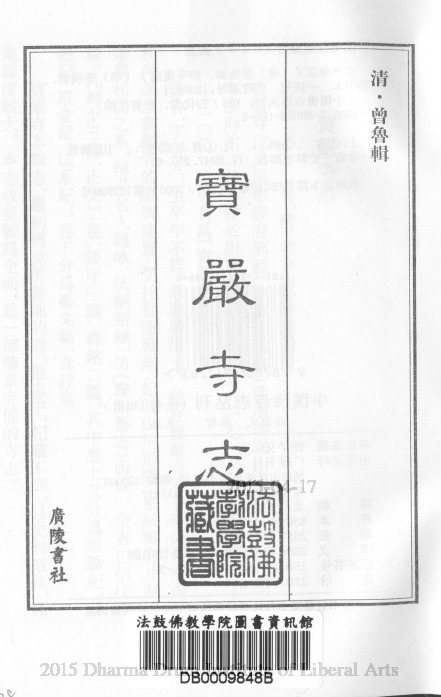 清·曾魯輯
寶嚴寺志
廣陵書社
2015-04-17
法鼓佛教學院藏書
法鼓佛教學院圖書資訊館
DB0009848B
2015 Dharma Drum Institute of Liberal Arts